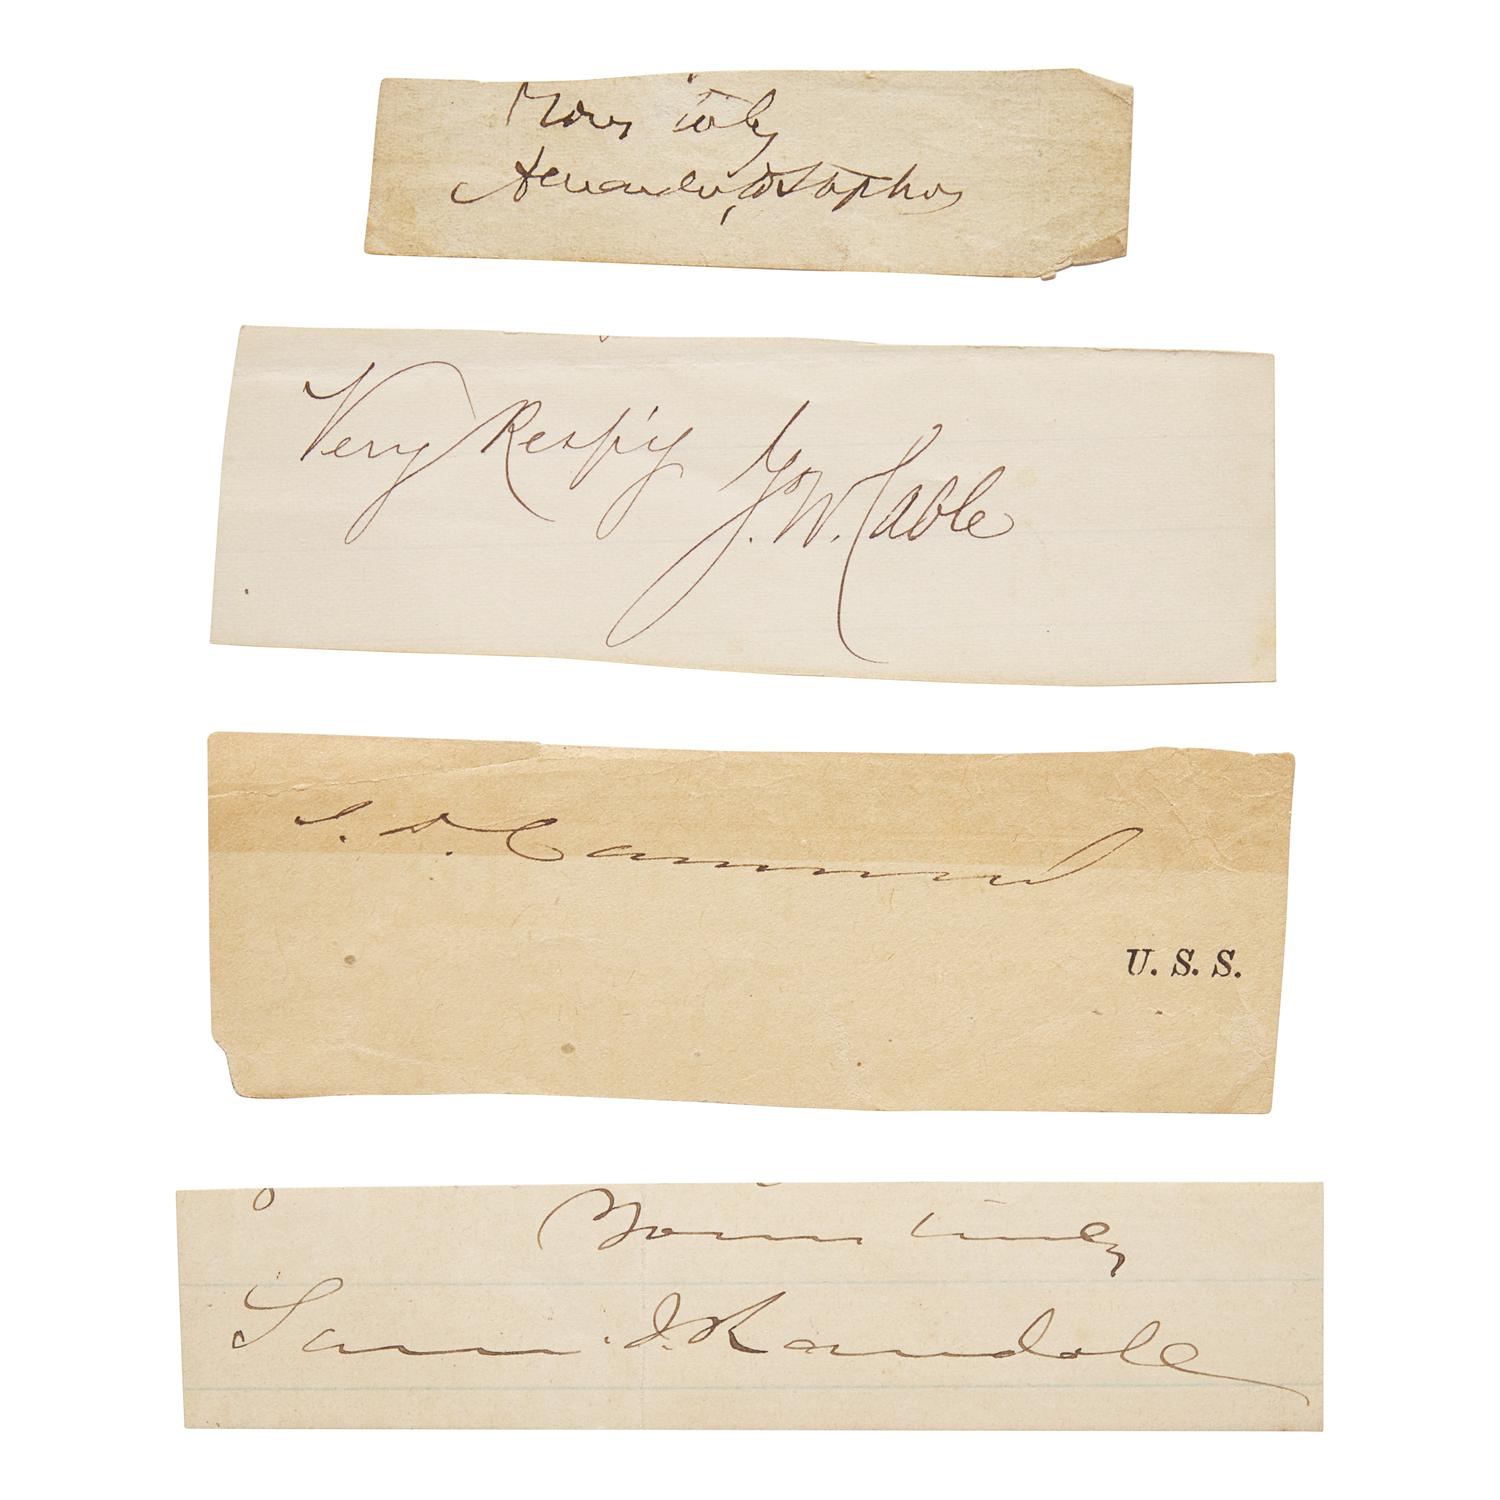 Yours truly
Alexander H Stephens
Very Resp'y G. W. Cable
J. D. Cameron
U. S. S.
Yours truly
Sam. J. Randall